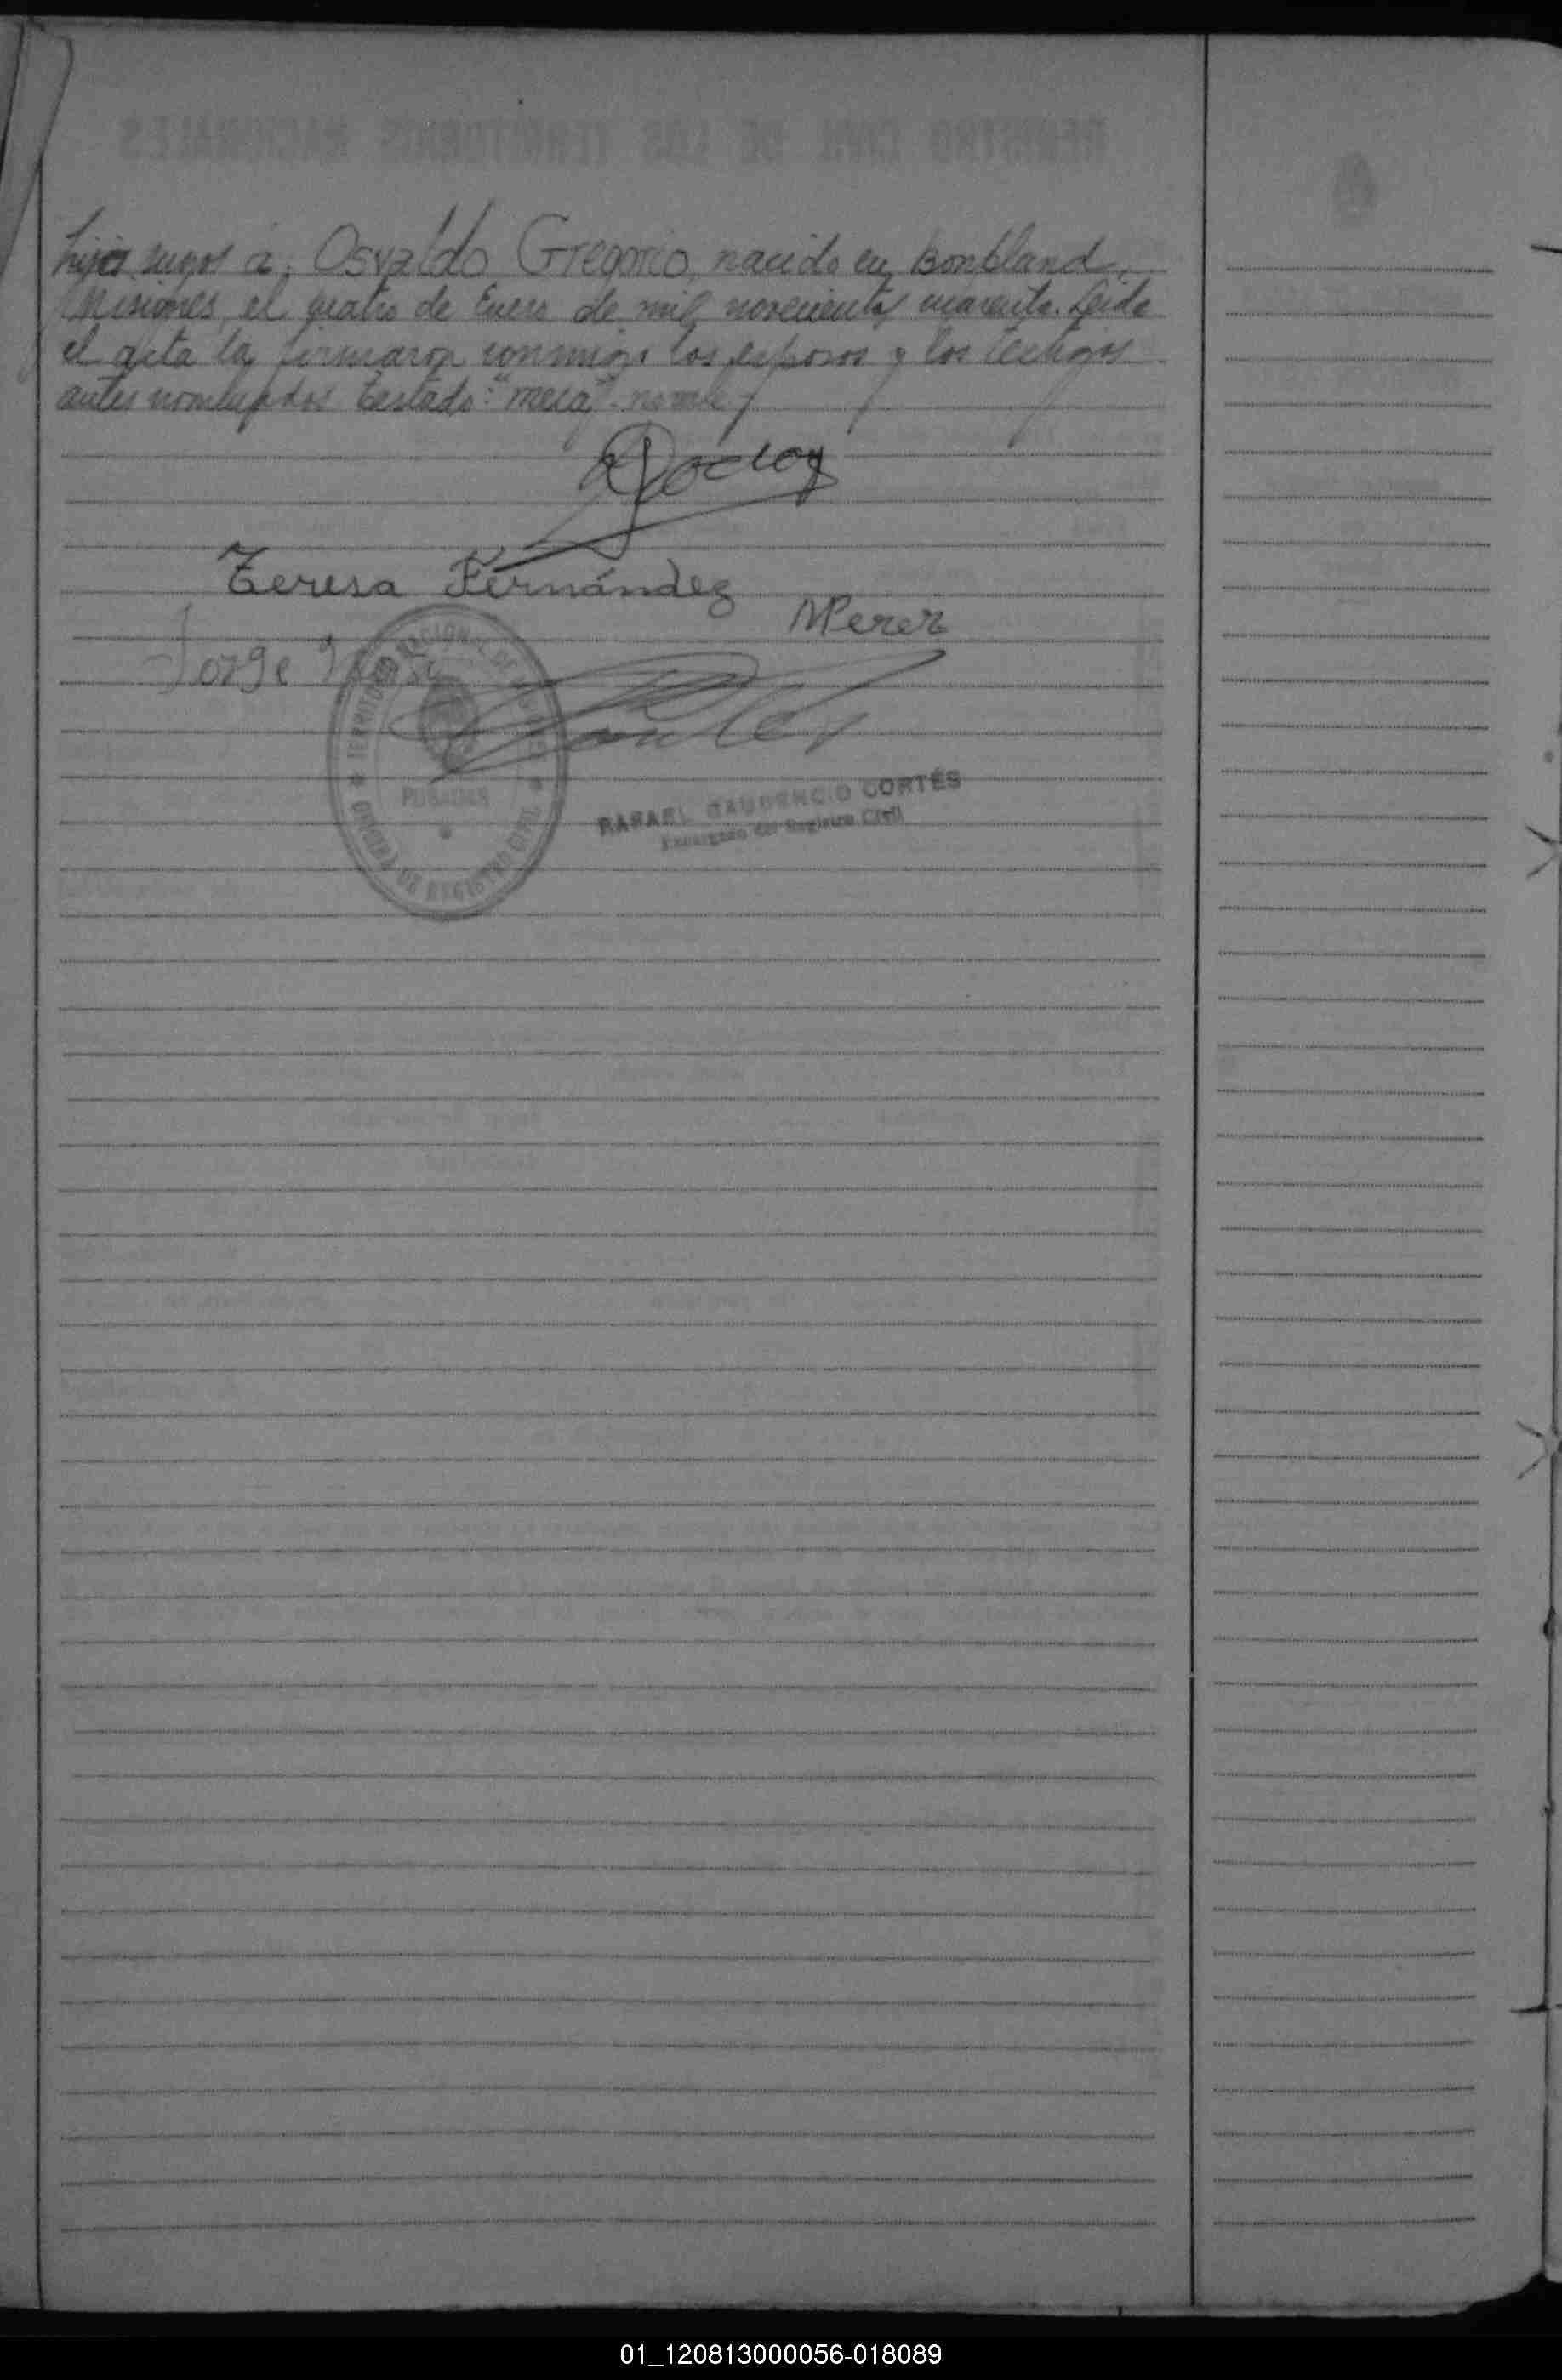 REGISTRO CIVIL DE LOS TERRITORIOS NACIONALES
hijos suyos a: Osvaldo Gregorio, nacido en Bonbland,
Misiones, el quatro de Enero de mil novecientos cuarenta. Leida
el acta la firmaron conmigo los esposos y los testigos
antes nombrados Testado: "mesa" no vale
Godoy
Teresa Fernández
Perez
Jorge
TERRITORIO NACIONAL DE MISIONES
POSADAS
OFICINA DE REGISTRO CIVIL
RAFAEL GAUDENCIO CORTÉS
Encargado del Registro Civil
01_120813000056-018089